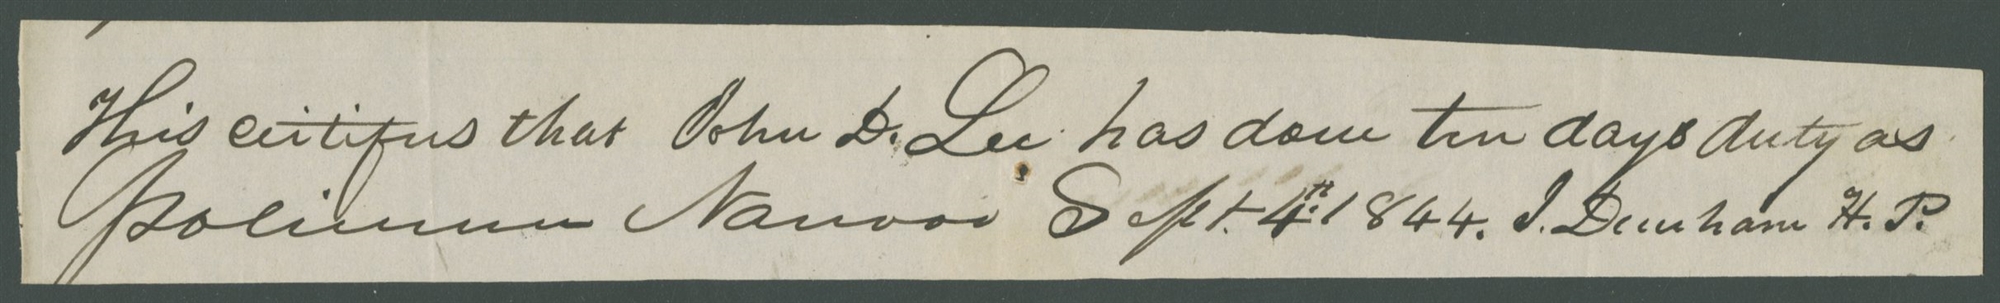 This certifies that John D. Lee has done ten days duty as
policeman Nauvoo Sept. 4th. 1844. J. Dunham H. P.